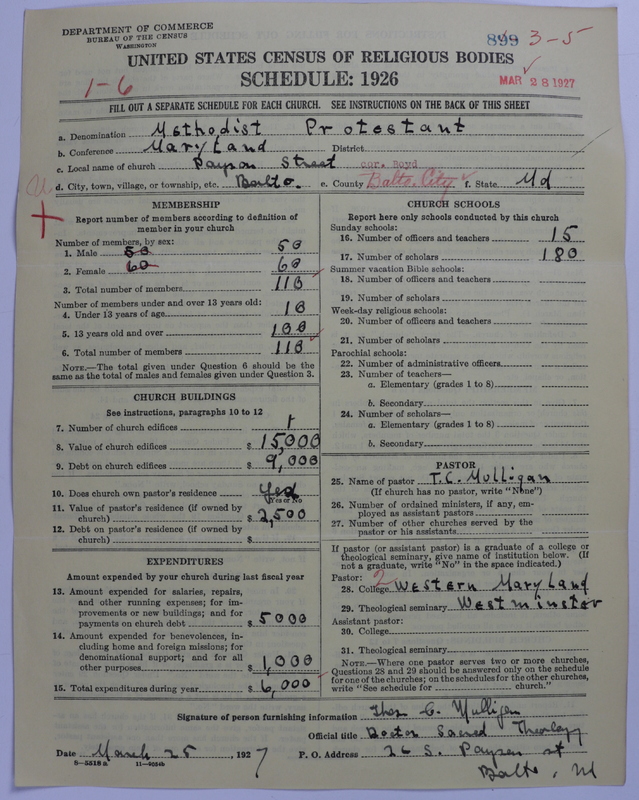 DEPARTMENT OF COMMERCE
BUREAU OF THE CENSUS
WASHINGTON
899 3-5
UNITED STATES CENSUS OF RELIGIOUS BODIES
SCHEDULE: 1926
1-6
MAR 28 1927
FILL OUT A SEPARATE SCHEDULE FOR EACH CHURCH. SEE INSTRUCTIONS ON THE BACK OF THIS SHEET
a. Denomination Methodist Protestant
b. Conference Maryland District
c. Local name of church Payson Street cor. Boyd
d. City, town, village, or township, etc. Balto. e. County Balto. City f. State Md
MEMBERSHIP
Report number of members according to definition of member in your church
Number of members, by sex:
1. Male 50 50
2. Female 60 60
3. Total number of members 110
Number of members under and over 13 years old:
4. Under 13 years of age 10
5. 13 years old and over 100
6. Total number of members 110
NOTE.—The total given under Question 6 should be the
same as the total of males and females given under Question 3.
CHURCH BUILDINGS
See instructions, paragraphs 10 to 12
7. Number of church edifices 1
8. Value of church edifices $ 15,000
9. Debt on church edifices $ 9,000
10. Does church own pastor's residence yes
Yes or No
11. Value of pastor's residence (if owned by
church) $ 2,500
12. Debt on pastor's residence (if owned by
church) $
EXPENDITURES
Amount expended by your church during last fiscal year
13. Amount expended for salaries, repairs,
and other running expenses; for im-
provements or new buildings; and for
payments on church debt $ 5000
14. Amount expended for benevolences, in-
cluding home and foreign missions; for
denominational support; and for all
other purposes $ 1,000
15. Total expenditures during year $ 6,000
CHURCH SCHOOLS
Report here only schools conducted by this church
Sunday schools:
16. Number of officers and teachers 15
17. Number of scholars 180
Summer vacation Bible schools:
18. Number of officers and teachers
19. Number of scholars
Week-day religious schools:
20. Number of officers and teachers
21. Number of scholars
Parochial schools:
22. Number of administrative officers
23. Number of teachers—
a. Elementary (grades 1 to 8)
b. Secondary
24. Number of scholars—
a. Elementary (grades 1 to 8)
b. Secondary
PASTOR
25. Name of pastor T.C. Mulligan
(If church has no pastor, write "None")
26. Number of ordained ministers, if any, em-
ployed as assistant pastors
27. Number of other churches served by the
pastor or his assistants
If pastor (or assistant pastor) is a graduate of a college or
theological seminary, give name of institution below. (If
not a graduate, write "No" in the space indicated.)
Pastor: 2
28. College Western Maryland
29. Theological seminary Westminster
Assistant pastor:
30. College
31. Theological seminary
NOTE.—Where one pastor serves two or more churches,
Questions 28 and 29 should be answered only on the schedule
for one of the churches; on the schedules for the other churches,
write "See schedule for church."
Signature of person furnishing information Thos C. Mulligan
Official title Doctor Sacred Theology
Date March 25, 1927 P. O. Address 26 S. Payson st
8-5518 a
Balto, Md